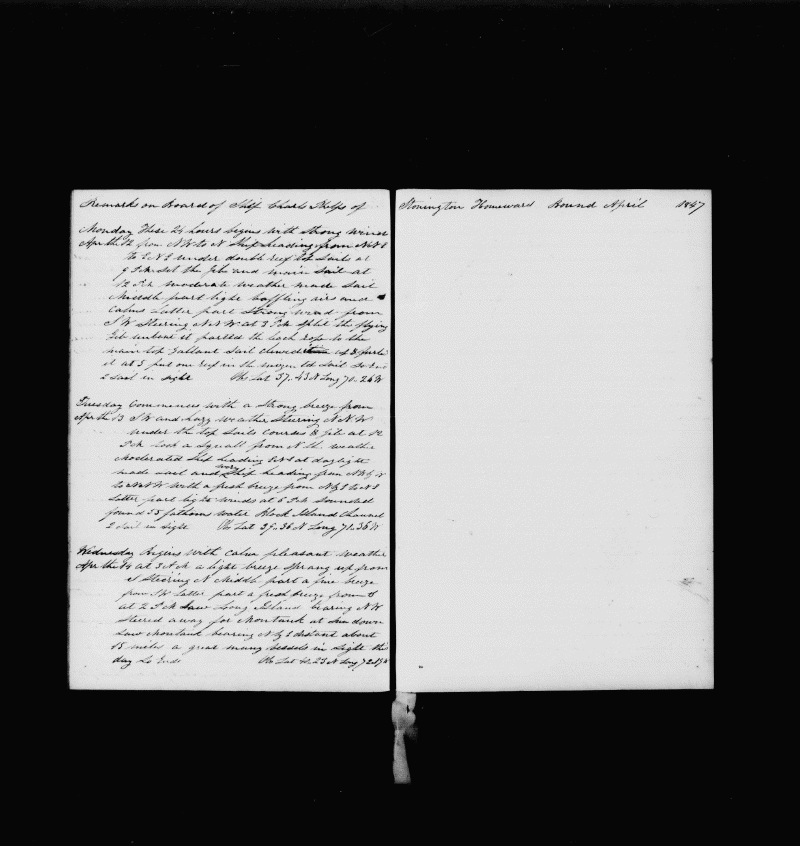 Remarks on Board of Ship Charls Phelps of
Monday These 24 hours begins with Strong winds
Apr th 12 from NW to N Ship heading from NNE
to ENE under double reef top Sails at
9 P.M. Set the Jib and main Sail at
12 P.M. moderate weather made Sail
Middle part light baffling airs and
Calms Latter part Strong wind from
SW Steering NNW at 3 P.M. Split the flying
Jib unbent it parted the back rope to the
main top Gallant Sail clewed it up & furld
it at 5 put one reef in the mizen top Sail So Ends
2 Sail in Sight Obs Lat 37.43 N Long 70.26 W
Tuesday Commences with a Strong breeze from
Apr th 13 SW and hazy weather Steering NNW
under the top Sails Courses & Jib at 12
P.M. took a Squall from N the weather
Moderated Ship heading ENE at daylight
made Sail and wore Ship heading from NW by N
to NNW with a fresh breeze from N by E to NE
Latter part light winds at 6 P.M. Sounded
found 35 fathoms water Block Island Channel
2 Sail in Sight Obs Lat 39.36 N Long 71.36 W
Wednesday begins with Calm pleasant weather
Apr th 14 at 3 A.M. a light breeze Sprang up from
Steering N Middle part a fine breeze
from SW Latter part a fresh breeze from S
at 2 P.M. Saw Long Island bearing NW
Steered away for Montauk at Sun down
Saw Montauk bearing N by E distant about
15 miles a great many vessels in Sight this
day So Ends Obs Lat 40.23 N Long
Stonington Homeward Bound April 1847